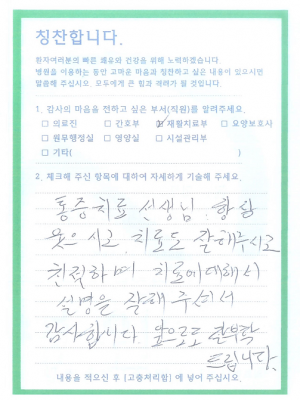 칭찬합니다.
환자여러분의 빠른 쾌유와 건강을 위해 노력하겠습니다.
병원을 이용하는 동안 고마운 마음과 칭찬하고 싶은 내용이 있으시면
말씀해 주십시오. 모두에게 큰 힘과 격려가 될 것입니다.
1. 감사의 마음을 전하고 싶은 부서(직원)를 알려주세요.
□ 의료진 □ 간호부 ☑ 재활치료부 □ 요양보호사
□ 원무행정실 □ 영양실 □ 시설관리부
□ 기타( )
2. 체크해 주신 항목에 대하여 자세하게 기술해 주세요.
통증치료 선생님. 항상
웃으시고 치료도 잘해주시고
친절하며 치료에대해서
설명을 잘해주셔서
감사합니다. 앞으로도 잘부탁
드립니다.
내용을 적으신 후 [고충처리함] 에 넣어 주십시오.